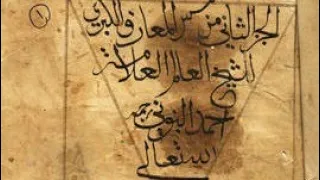 الجزء الثاني من شمس المعارف الكبرى
للشيخ العالم العلامة
احمد البوني رحمه
الله تعالى